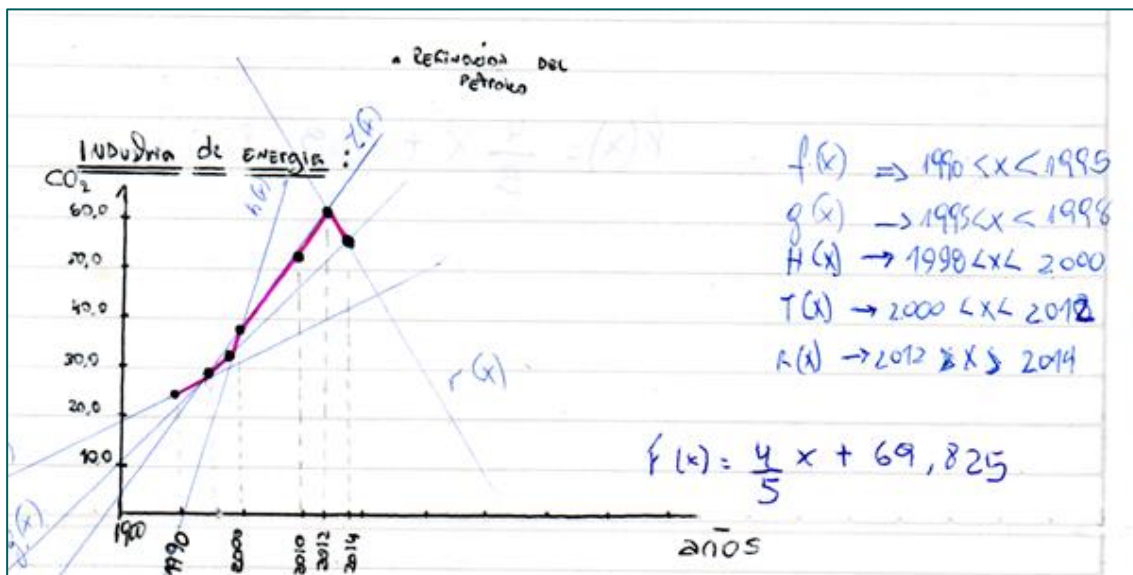 • REFINACIÓN DEL
PETROLEO
INDUSTRIA de ENERGIA :
CO₂
60,0
50,0
40,0
30,0
20,0
10,0
1980
1990
2000
2010
2012
2014
años
h(x)
T(x)
r(x)
g(x)
f(x) => 1990 < x < 1995
g(x) -> 1995 < x < 1998
H(x) → 1998 < x < 2000
T(x) → 2000 < x < 2012
R(x) → 2012 x 2014
f(x) = 4/5 x + 69,825